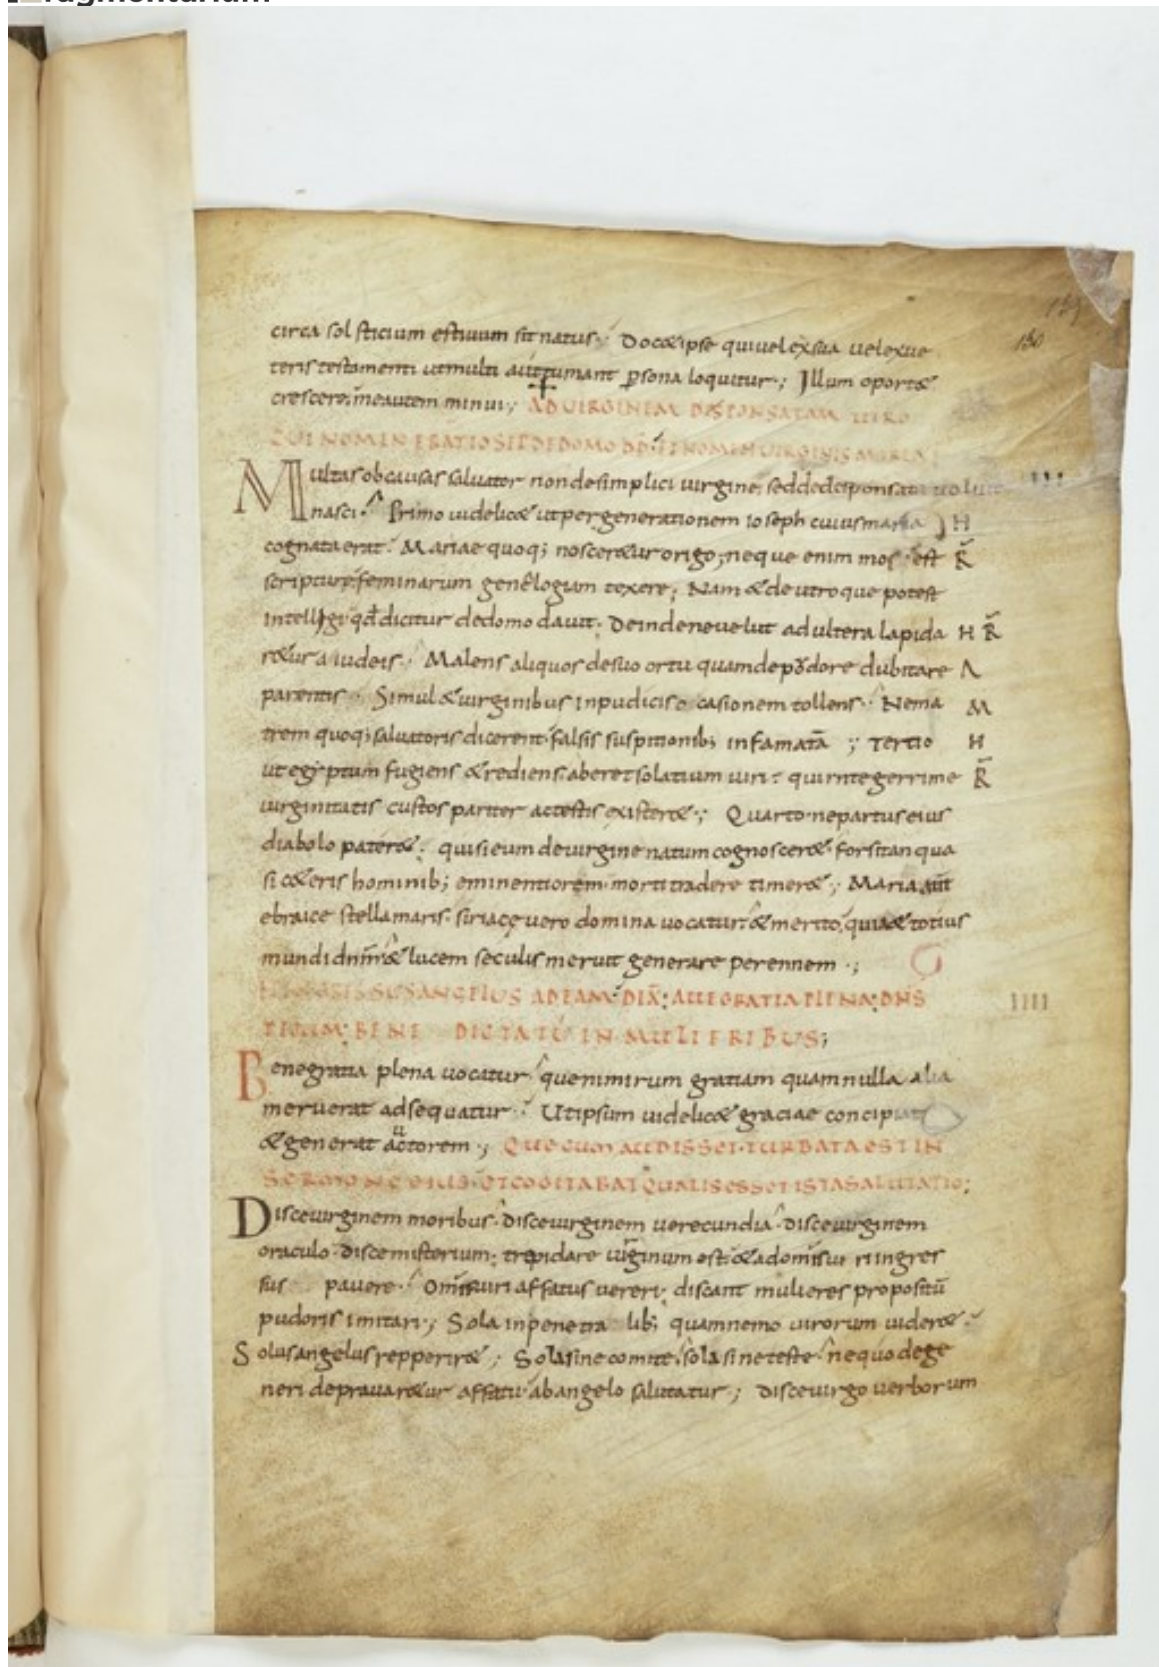 circa sol sticium estiuum sit natus. Docet ipse qui uel ex sua uel ex ue
teris testamenti ut multi autumant psona loquitur; Illum oportet
crescere. me autem minui; AD UIRGINEM DISPONSATAM UIRO
CUI NOMEN ERAT IOSEPH DE DOMO DD. ET NOMEN UIRGINIS MARIA
Multas ob causas saluator non de simplici uirgine. sed de disponsata uoluit III
nasci. Primo uidelicet ut per generationem ioseph cuius maria H
cognata erat. Mariae quoq; nosceretur origo, neque enim mos est R̄
scripturę feminarum genelogiam texere; Nam et de utroque potest
intelligi qđ dicitur de domo dauit. Deinde ne uelut adultera lapida H R̄
retur a iudeis. Malens aliquos de suo ortu quam de pudore dubitare A
parentis. Simul et uirginibus inpudicis ocasionem tollens. Ne ma M
trem quoq; saluatoris dicerent falsis suspitionib; infamatā; Tertio H
ut egyptum fugiens et rediens aberet solatium uiri. qui integerrime R̄
uirginitatis custos pariter ac testis existeret; Quarto ne partus eius
diabolo pateret. qui si eum de uirgine natum cognosceret forsitan qua
si ceteris hominib; eminentiorem morti tradere timeret; Maria aut
ebraice stella maris. siriace uero domina uocatur. et merito, quia et totius
mundi dnm et lucem seculis meruit generare perennem;
ANGELUS AD EAM. DIX̄: AUE GRATIA PLENA. DN̄S IIII
TECUM. BENE DICTA TU IN MULIERIBUS;
Bene gratia plena uocatur que nimirum gratiam quam nulla alia
meruerat adsequatur. Ut ipsum uidelicet graciae concipiat
et generat auctorem; QUE CUM AUDISSET. TURBATA EST IN
SERMONE EIUS. ET COGITABAT QUALIS ESSET ISTA SALUTATIO;
Disce uirginem moribus. disce uirginem uerecundia. disce uirginem
oraculo. disce misterium. trepidare uirginum est. et ad omnis uiri ingres
sus pauere. Omnis uiri affatus uereri. discant mulieres propositū
pudoris imitari; Sola in penetra lib; quam nemo uirorum uideret.
Solus angelus repperiret; Sola sine comite. sola sine teste. ne quo dege
neri deprauaretur affatu. ab angelo salutatur; disce uirgo uerborum